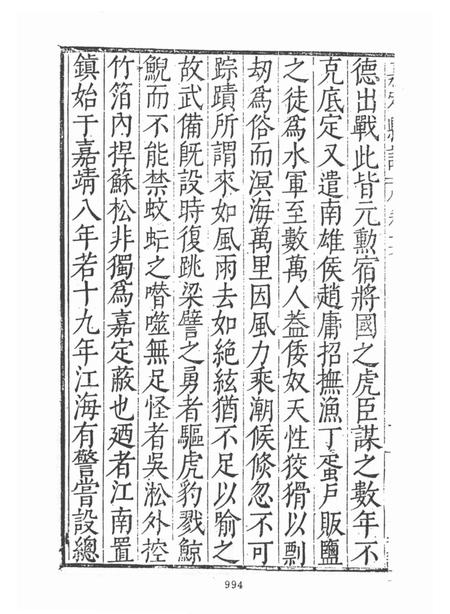 德出戰此皆元勲宿將國之虎臣謀之數年不
克底定又遣南雄侯趙庸招撫漁丁蛋戶販鹽
之徒爲水軍至數萬人益倭奴天性狡猾以剽
刼爲俗而溟海萬里因風力乘潮候倏忽不可
踪蹟所謂來如風雨去如絶絃猶不足以喻之
故武備旣設時復跳梁譬之勇者驅虎豹戮鯨
鯢而不能禁蚊䖟之噆噬無足怪者吳淞外控
竹箔內捍蘇松非獨爲嘉定蔽也廼者江南置
鎮始于嘉靖八年若十九年江海有警嘗設總
994